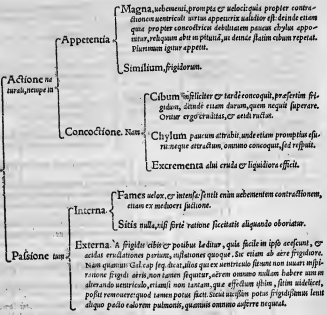 Magna, uehementi, prompta & ueloci: quia propter contra-
ctionem uentriculi uetius appeturit ualidior est: deinde etiam
quia propter concoctricis debilitatem paucus chylus appo-
nitur, reliquum abit in pituitā, ut deinde statim cibum repetat.
Plurimum igitur appetit.
Appetentia
Similium, frigidorum.
Actione na
turali, nempe in
Cibum infeliciter & tardè concoquit, præsertim fri-
gidum, deinde etiam durum, quem nequit superare.
Oritur ergo cruditas, & acidi ructus.
Concoctione. Nam
Chylum paucum attrahit, unde etiam promptius esu-
rit: neque attractum, omnino concoquit, sed respuit.
Excrementa alui cruda & liquidiora efficit.
Fames uelox, & intensa: sentit enim uehementem contractionem,
etiam ex mediocri suctione.
Interna.
Sitis nulla, nisi fortè ratione siccitatis aliquando oboriatur.
Passione tum
Externa. A frigidis cibis & potibus læditur, quia facilè in ipso acescunt, &
acidas eructationes pariunt, inflationes quoque. Sic etiam ab aëre frigidiore.
Nam quamuis Gal. cap. seq. dicat, illos qui ex uentriculo sitiunt non iuuari inspi-
ratione frigidi aëris, non tamen sequitur, aërem omnino nullam habere uim in
alterando uentriculo, etiamsi non tantam, quæ effectum sistim, sitim uidelicet,
possit remouere: quod tamen potus facit. Sicuti uicissim potus frigidissimus lenit
aliquo pacto calorem pulmonis, quamuis omnino auferre nequeat.